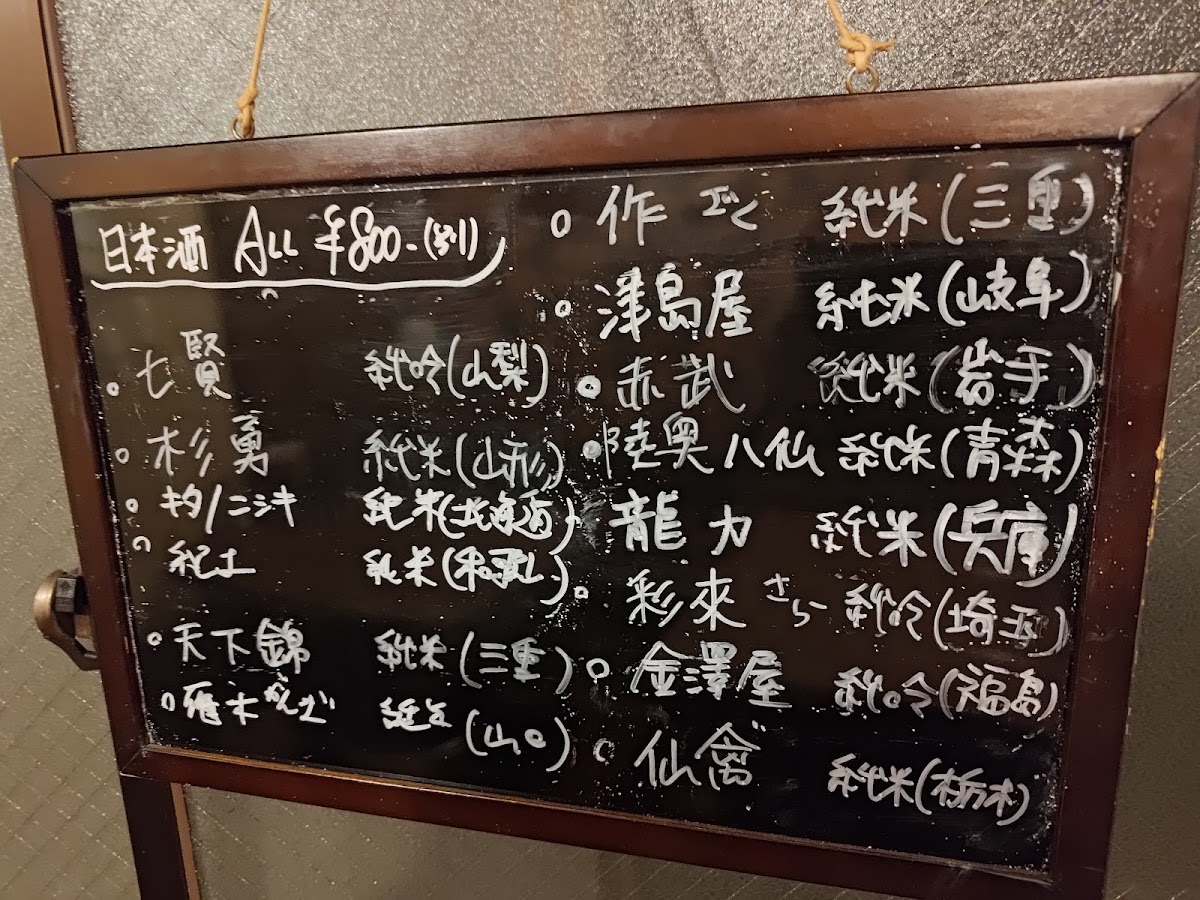 日本酒 All ¥800-(込り)
七賢 純吟(山梨)
杉勇 純米(山形)
キタノニシキ 純米(北海道)
紀土 純米(和歌山)
天下錦 純米(三重)
雁木 がんぎ 純米(山口)
作 ざく 純米(三重)
津島屋 純米(岐阜)
赤武 純米(岩手)
陸奥八仙 純米(青森)
龍力 純米(兵庫)
彩來 さら 純吟(埼玉)
金澤屋 純吟(福島)
仙禽 純米(栃木)